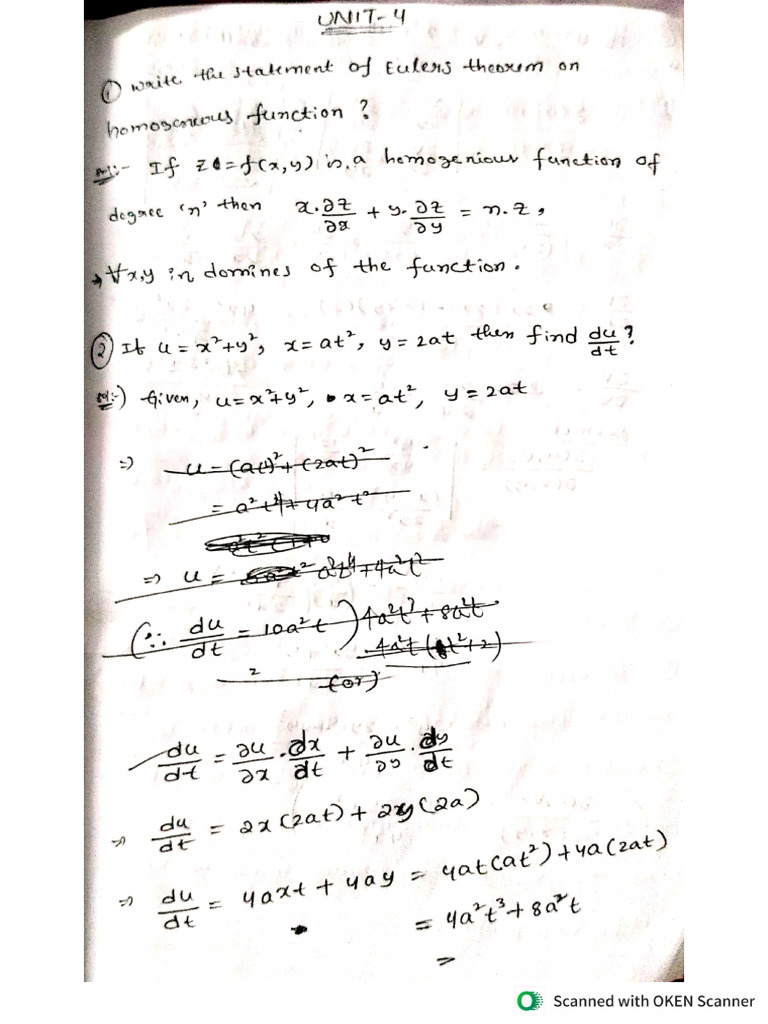 UNIT-4
① write the statement of Eulers theorem on
homogenious function ?
Ans:- If z = f(x,y) is a homogenious function of
degree 'n' then x.∂z/∂x + y.∂z/∂y = n.z,
→ ∀x,y in domines of the function.
② If u = x²+y², x = at², y = 2at then find du/dt ?
Sol:-) Given, u = x²+y², x = at², y = 2at
=> u = (at²)² + (2at)²
= a²t⁴ + 4a²t²
=> u = a²t⁴+4a²t²
(∵ du/dt = 10a²t) 4a²t³ + 8a²t
4a²t (t²+2)
(or)
du/dt = ∂u/∂x . dx/dt + ∂u/∂y . dy/dt
=> du/dt = 2x(2at) + 2y(2a)
=> du/dt = 4axt + 4ay = 4at(at²) + 4a(2at)
= 4a²t³ + 8a²t
=
Scanned with OKEN Scanner